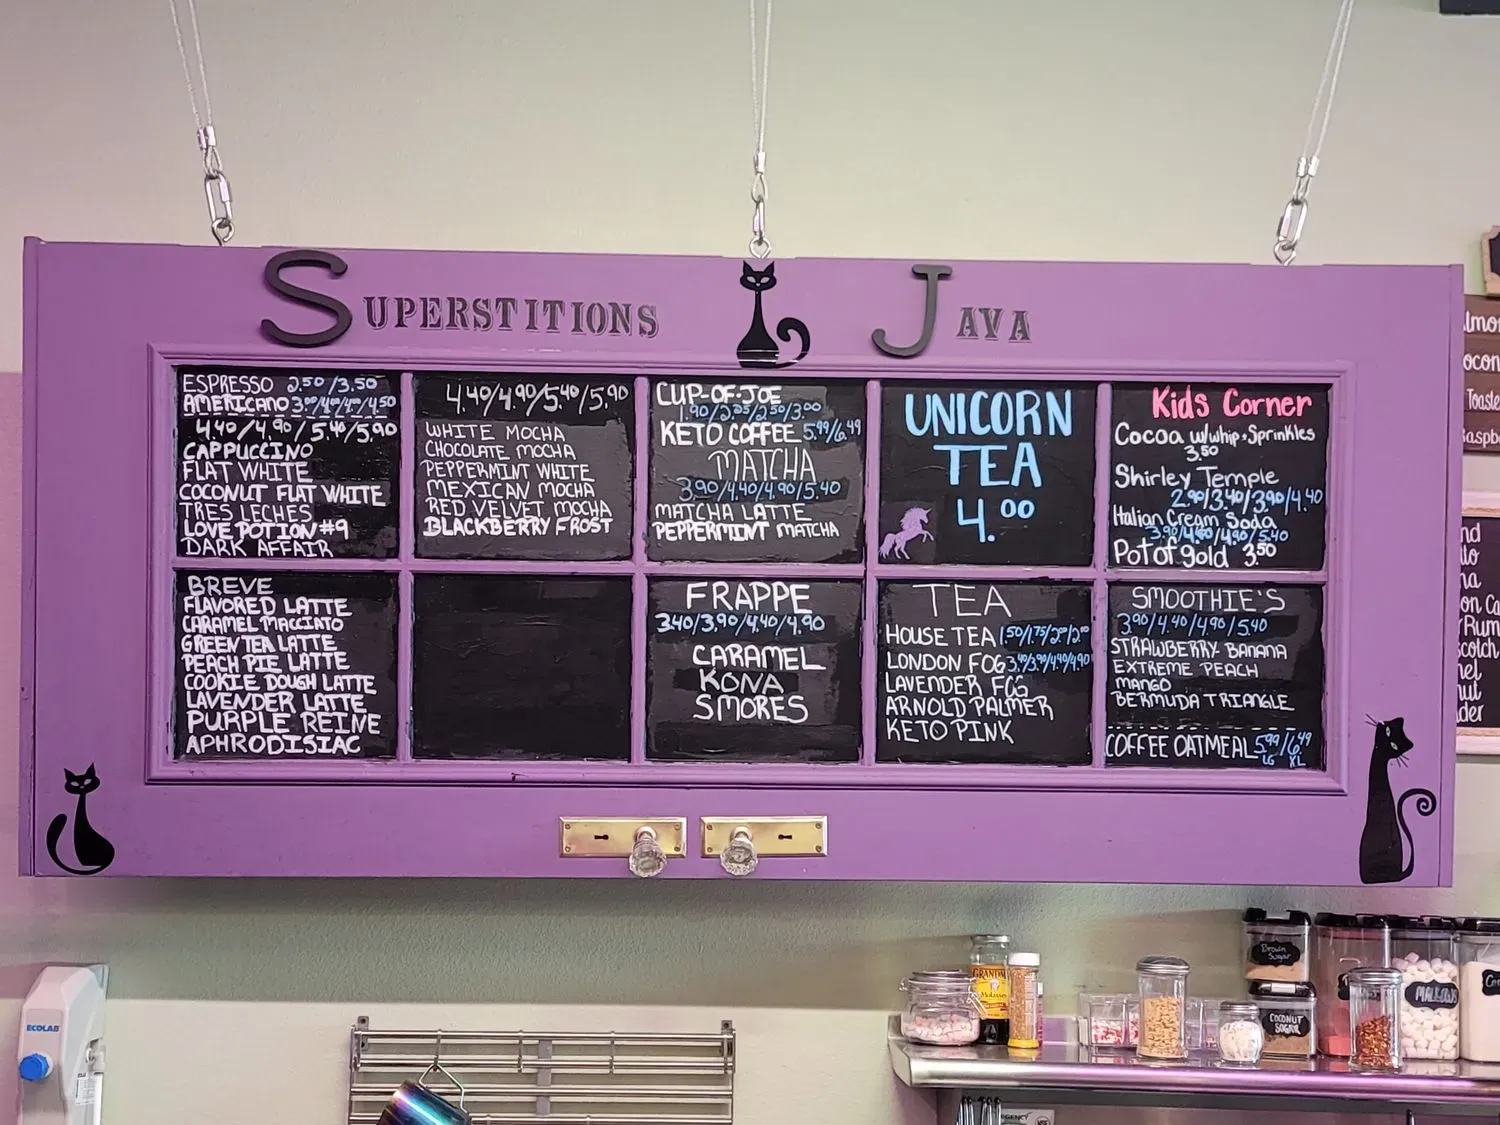 SUPERSTITIONS JAVA
ESPRESSO 2.50/3.50
AMERICANO 3.00/4.00/4.00/4.50
4.40/4.90/5.40/5.90
CAPPUCCINO
FLAT WHITE
COCONUT FLAT WHITE
TRES LECHES
LOVE POTION #9
DARK AFFAIR
4.40/4.90/5.40/5.90
WHITE MOCHA
CHOCOLATE MOCHA
PEPPERMINT WHITE
MEXICAN MOCHA
RED VELVET MOCHA
BLACKBERRY FROST
CUP-OF-JOE
1.90/2.25/2.50/3.00
KETO COFFEE 5.99/6.49
MATCHA
3.90/4.40/4.90/5.40
MATCHA LATTE
PEPPERMINT MATCHA
UNICORN
TEA
4.00
Kids Corner
Cocoa w/whip+Sprinkles
3.50
Shirley Temple
2.90/3.40/3.90/4.40
Italian Cream Soda
3.90/4.40/4.90/5.40
Pot of gold 3.50
BREVE
FLAVORED LATTE
CARAMEL MACCIATO
GREEN TEA LATTE
PEACH PIE LATTE
COOKIE DOUGH LATTE
LAVENDER LATTE
PURPLE REINE
APHRODISIAC
FRAPPE
3.40/3.90/4.40/4.90
CARAMEL
KONA
SMORES
TEA
HOUSE TEA 1.50/1.75/2.00/2.00
LONDON FOG 3.40/3.90/4.40/4.90
LAVENDER FOG
ARNOLD PALMER
KETO PINK
SMOOTHIE'S
3.90/4.40/4.90/5.40
STRAWBERRY BANANA
EXTREME PEACH
MANGO
BERMUDA TRIANGLE
COFFEE OATMEAL 5.99/6.49
LG XL
ECOLAB
GRANDMA
Molasses
Brown
Sugar
COCONUT
SUGAR
MALLOWS